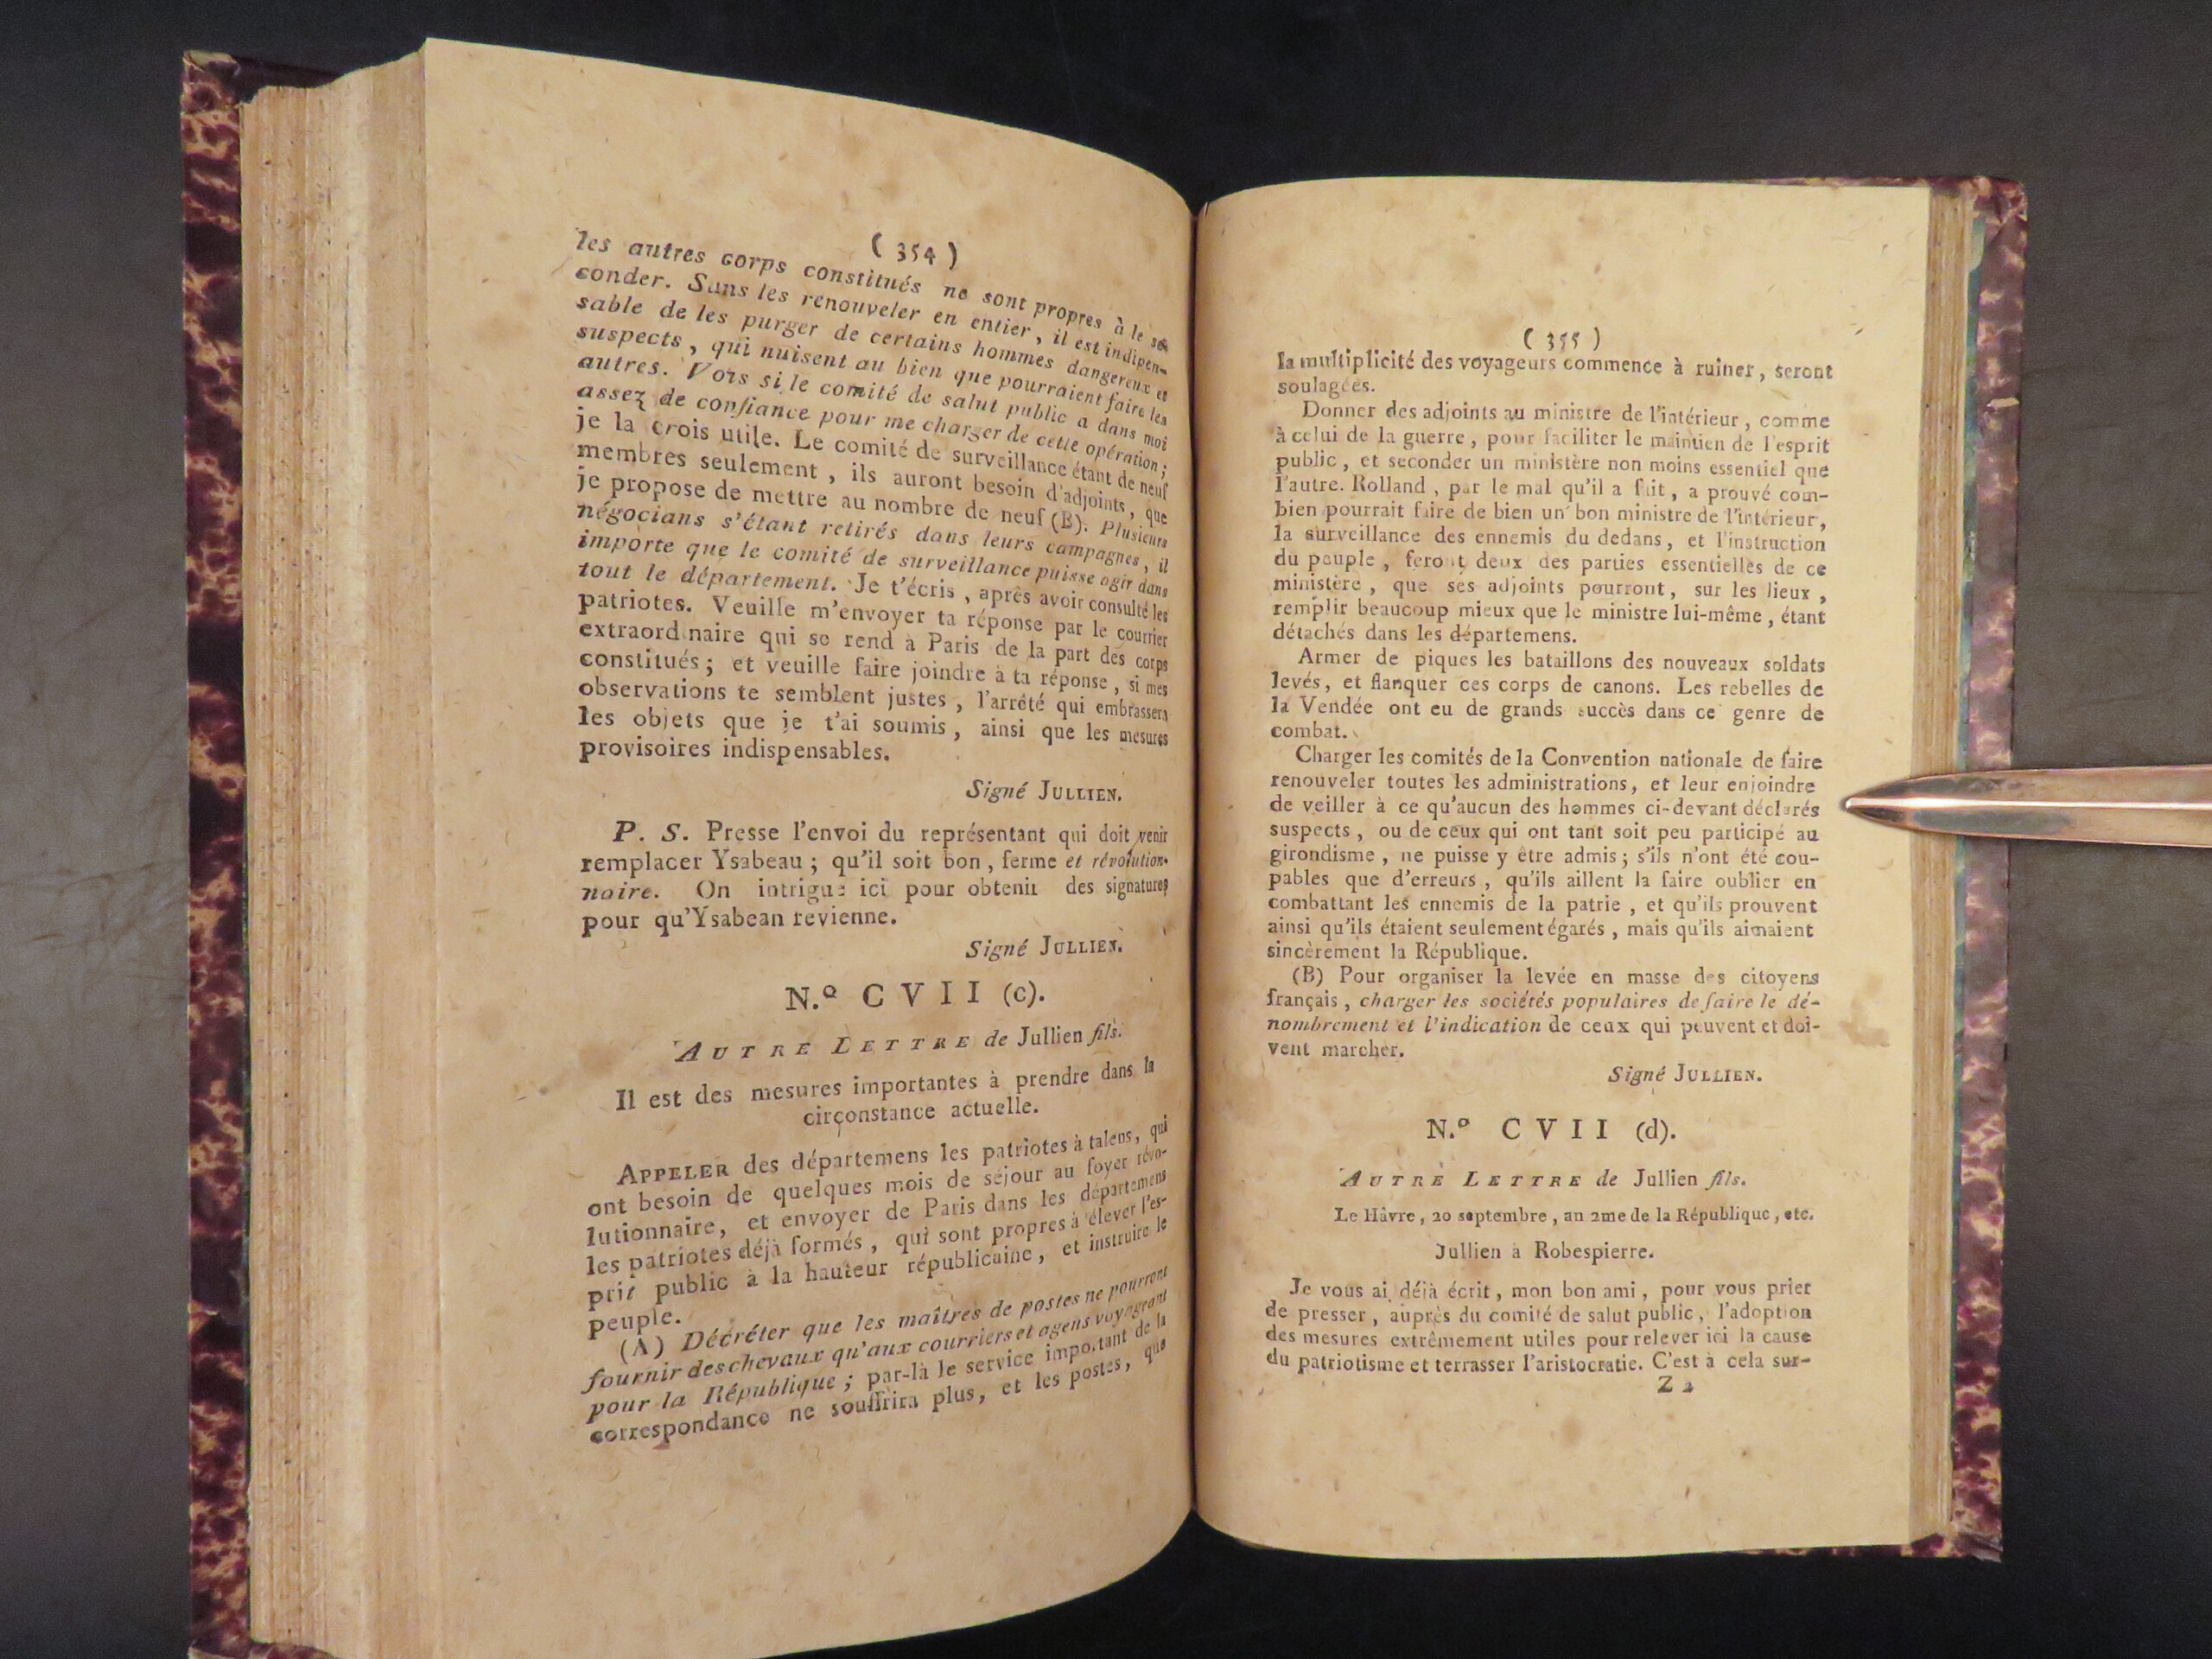 ( 354 )
les autres corps constitués ne sont propres à le se-
conder. Sans les renouveler en entier, il est indispen-
sable de les purger de certains hommes dangereux et
suspects, qui nuisent au bien que pourraient faire les
autres. Vois si le comité de salut public a dans moi
assez de confiance pour me charger de cette opération ;
je la crois utile. Le comité de surveillance étant de neuf
membres seulement, ils auront besoin d'adjoints, que
je propose de mettre au nombre de neuf (B). Plusieurs
négocians s'étant retirés dans leurs campagnes, il
importe que le comité de surveillance puisse agir dans
tout le département. Je t'écris, après avoir consulté les
patriotes. Veuille m'envoyer ta réponse par le courrier
extraordinaire qui se rend à Paris de la part des corps
constitués ; et veuille faire joindre à ta réponse, si mes
observations te semblent justes, l'arrêté qui embrassera
les objets que je t'ai soumis, ainsi que les mesures
provisoires indispensables.
Signé JULLIEN.
P. S. Presse l'envoi du représentant qui doit venir
remplacer Ysabeau ; qu'il soit bon, ferme et révolution-
naire. On intrigue ici pour obtenir des signatures
pour qu'Ysabean revienne.
Signé JULLIEN.
N.º CVII (c).
AUTRE LETTRE de Jullien fils.
Il est des mesures importantes à prendre dans la
circonstance actuelle.
APPELER des départemens les patriotes à talens, qui
ont besoin de quelques mois de séjour au foyer révo-
lutionnaire, et envoyer de Paris dans les départemens
les patriotes déjà formés, qui sont propres à élever l'es-
prit public à la hauteur républicaine, et instruire le
peuple.
(A) Décréter que les maîtres de postes ne pourront
fournir des chevaux qu'aux courriers et agens voyageant
pour la République ; par-là le service important de la
correspondance ne souffrira plus, et les postes, que
( 355 )
la multiplicité des voyageurs commence à ruiner, seront
soulagées.
Donner des adjoints au ministre de l'intérieur, comme
à celui de la guerre, pour faciliter le maintien de l'esprit
public, et seconder un ministère non moins essentiel que
l'autre. Rolland, par le mal qu'il a fait, a prouvé com-
bien pourrait faire de bien un bon ministre de l'intérieur,
la surveillance des ennemis du dedans, et l'instruction
du peuple, feront deux des parties essentielles de ce
ministère, que ses adjoints pourront, sur les lieux,
remplir beaucoup mieux que le ministre lui-même, étant
détachés dans les départemens.
Armer de piques les bataillons des nouveaux soldats
levés, et flanquer ces corps de canons. Les rebelles de
la Vendée ont eu de grands succès dans ce genre de
combat.
Charger les comités de la Convention nationale de faire
renouveler toutes les administrations, et leur enjoindre
de veiller à ce qu'aucun des hommes ci-devant déclarés
suspects, ou de ceux qui ont tant soit peu participé au
girondisme, ne puisse y être admis ; s'ils n'ont été cou-
pables que d'erreurs, qu'ils aillent la faire oublier en
combattant les ennemis de la patrie, et qu'ils prouvent
ainsi qu'ils étaient seulement égarés, mais qu'ils aimaient
sincèrement la République.
(B) Pour organiser la levée en masse des citoyens
français, charger les sociétés populaires de faire le dé-
nombrement et l'indication de ceux qui peuvent et doi-
vent marcher.
Signé JULLIEN.
N.º CVII (d).
AUTRE LETTRE de Jullien fils.
Le Hâvre, 20 septembre, an 2me de la République, etc.
Jullien à Robespierre.
Je vous ai déjà écrit, mon bon ami, pour vous prier
de presser, auprès du comité de salut public, l'adoption
des mesures extrêmement utiles pour relever ici la cause
du patriotisme et terrasser l'aristocratie. C'est à cela sur-
Z 2